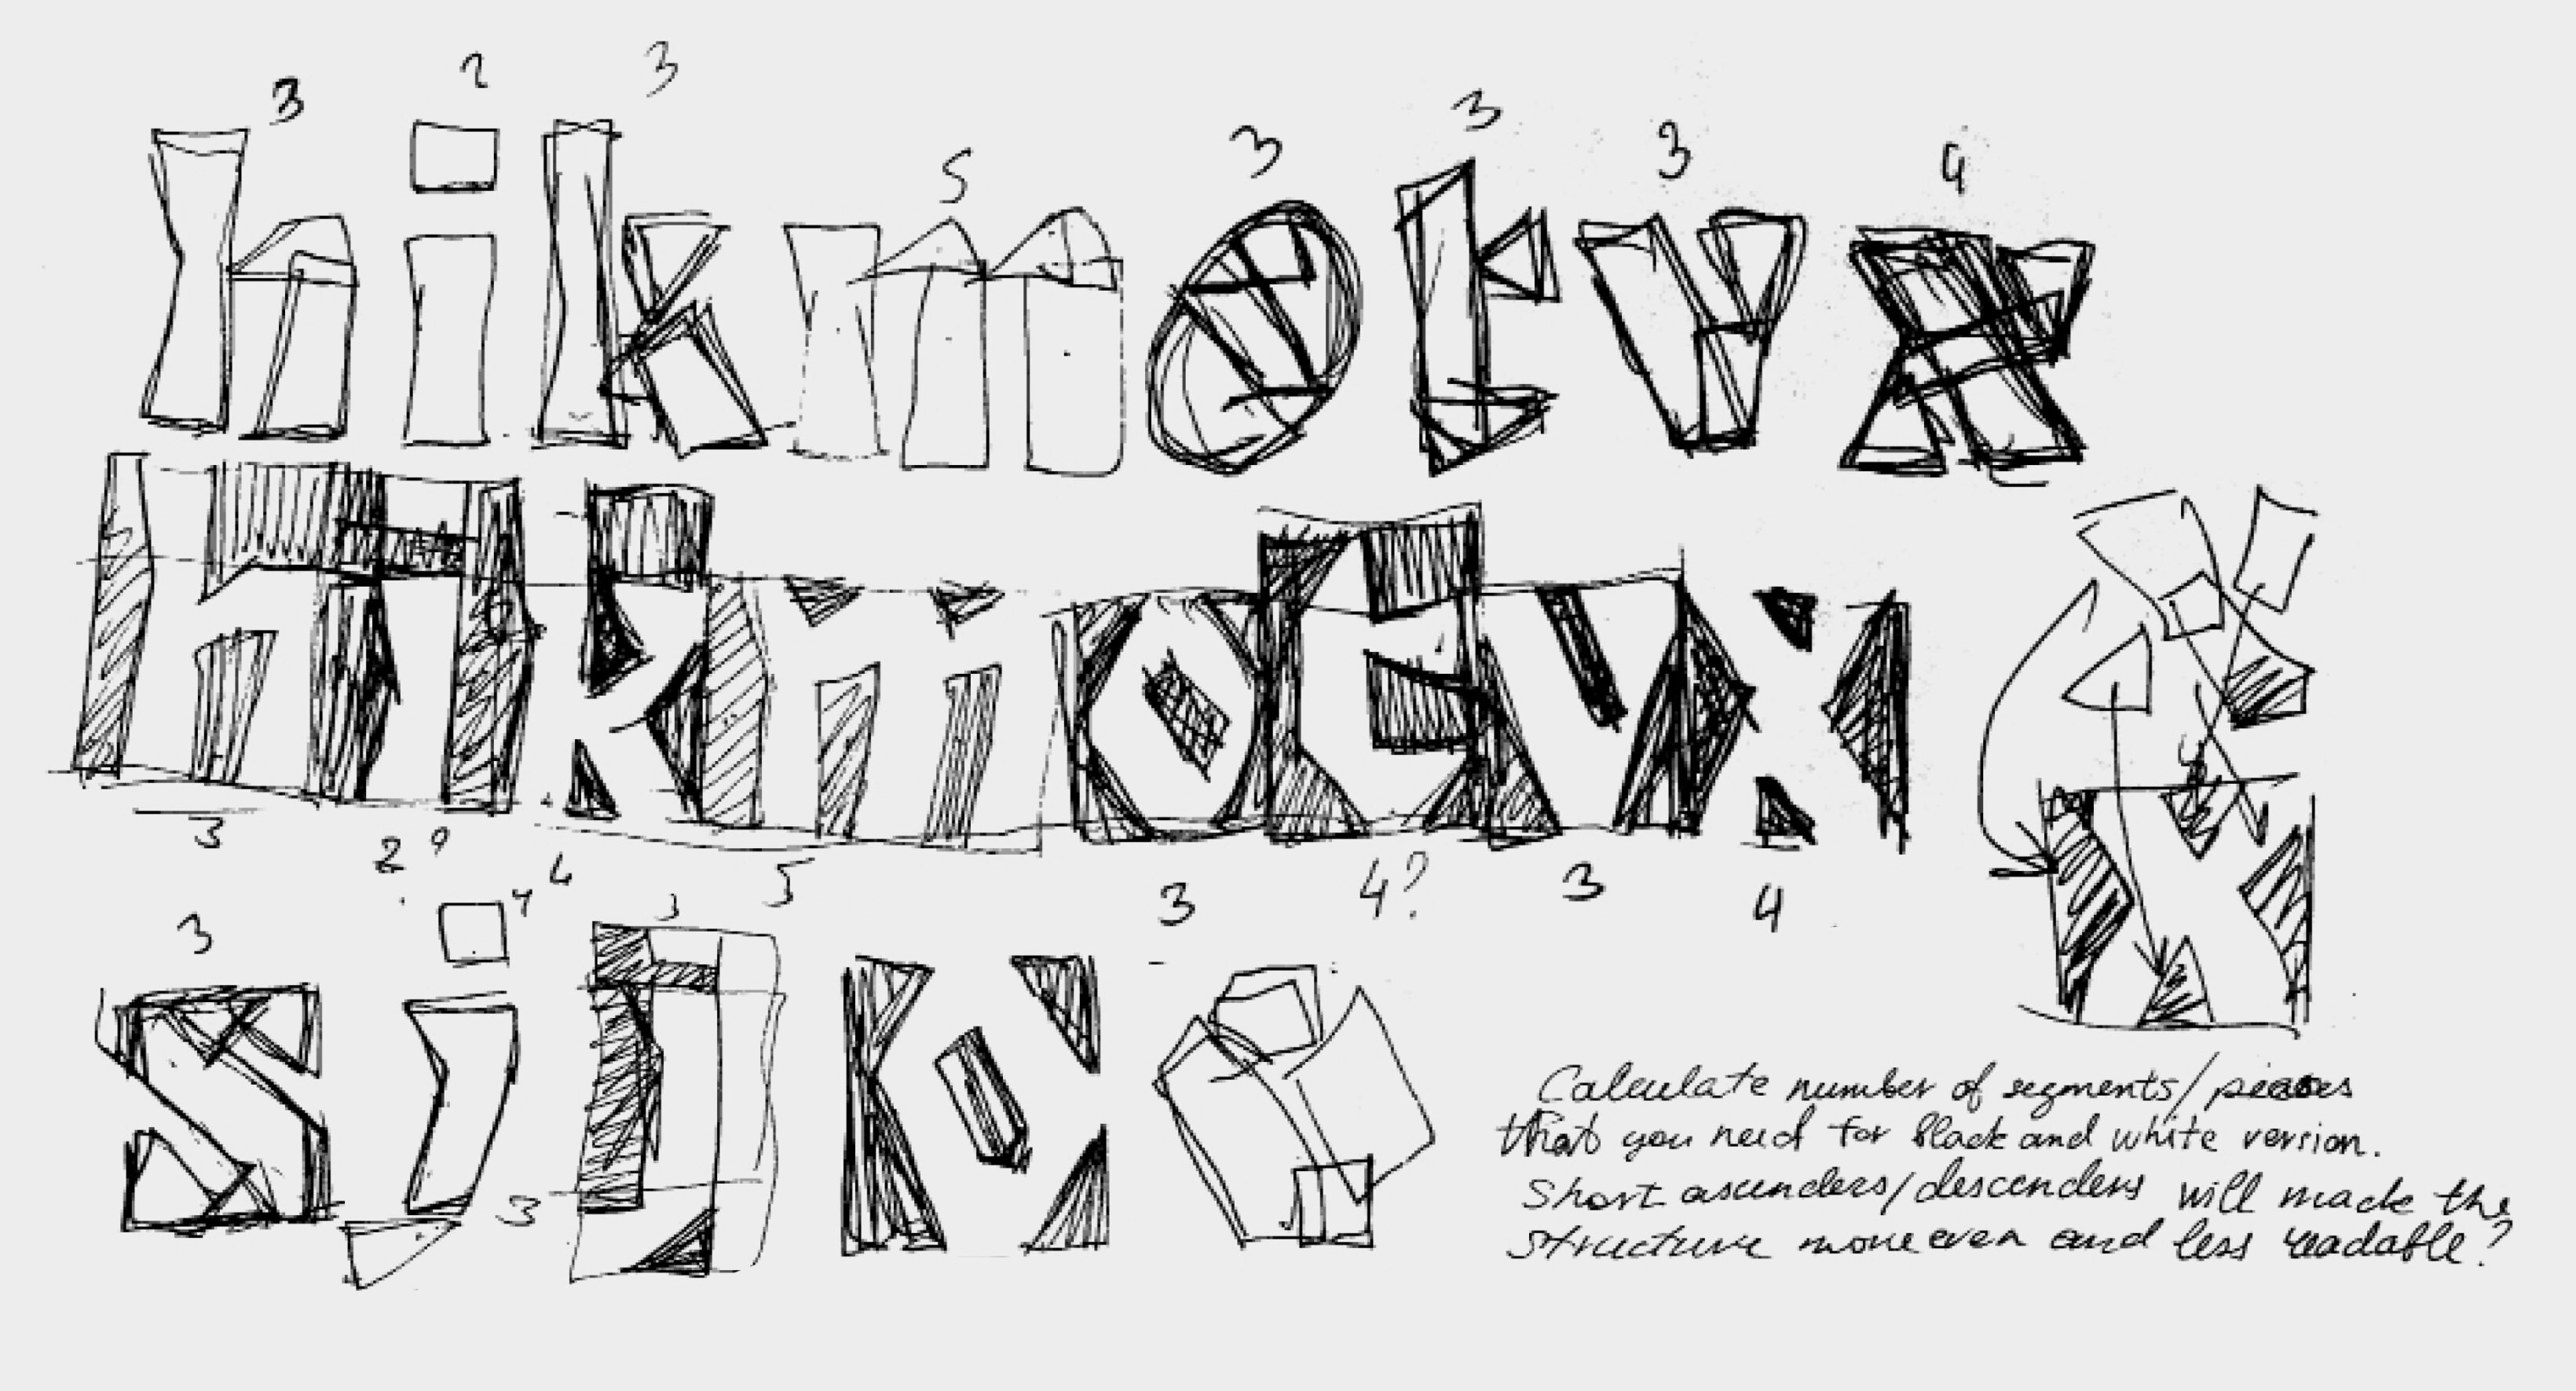 3 2 3 5 3 3 3 4
h i k m o t v x
h i k m o t v x
3 2 4 5 3 4? 3 4
3
s j
3
Calculate number of segments/pieces
that you need for black and white version.
Short ascenders/descenders will made the
structure more even and less readable?